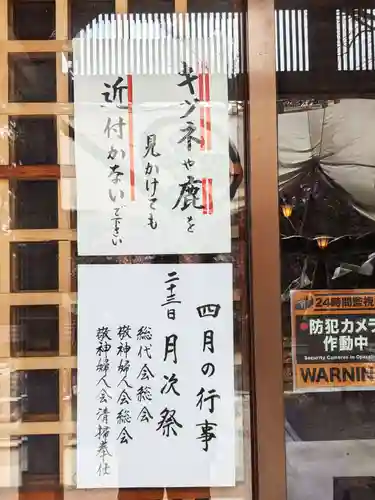 キツネや鹿を
見かけても
近付かないで下さい
四月の行事
二十三日 月次祭
総代会総会
敬神婦人会総会
敬神婦人会清掃奉仕
24時間監視
防犯カメラ
作動中
Security Cameras in Operation
WARNING